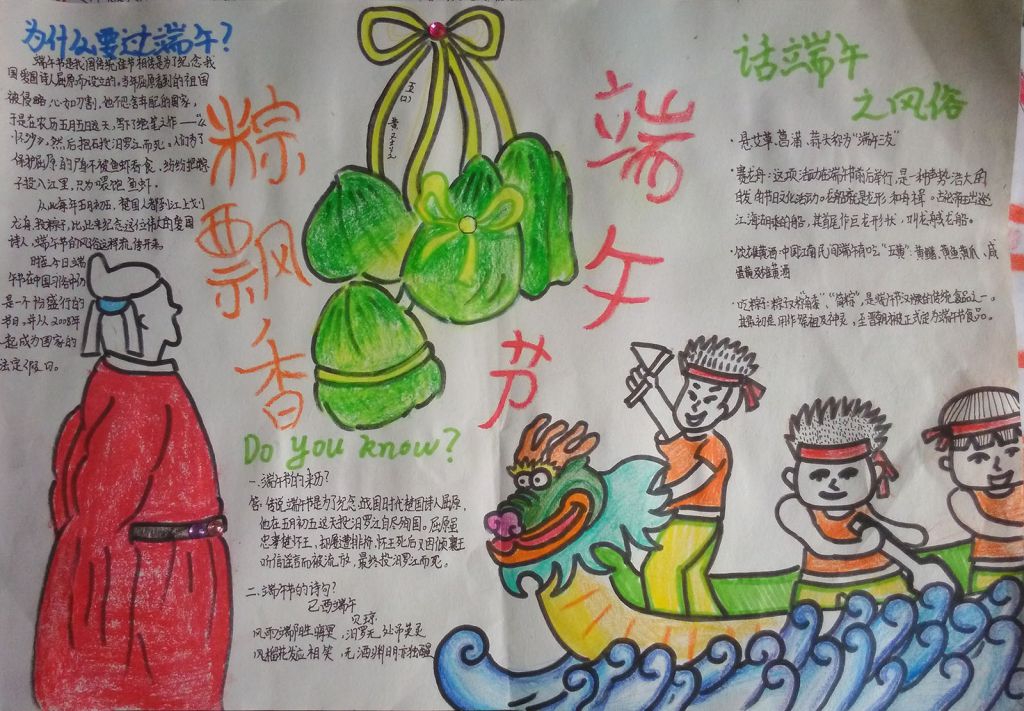 为什么要过端午?
端午节是我国传统佳节相传是为了纪念我
国爱国诗人屈原而设立的。当年屈原看到的祖国
被侵略,心如刀割,他不忍舍弃自己的国家,
于是在农历五月五日这天,写下了绝笔之作——
《怀沙》,然后抱石投汨罗江而死。人们为了
保护屈原的尸体不被鱼虾吞食,纷纷把粽
子投入江里,只为喂饱鱼虾。
从此每年五月初五,楚国人都到江上划
龙舟,投粽子,以此来纪念这位伟大的爱国
诗人,端午节的风俗这样流传开来。
时至今日,端
午节在中国习俗中仍
是一个很盛行的
节日。并从2008年
起成为国家的
法定假日。
粽飘香
端午节
话端午
之风俗
悬艾草、菖蒲、蒜头称为"端午三友"
·赛龙舟:这项活动在端午节前后举行,是一种声势浩大的
江海
·饮雄黄酒:中国江南民间端午有吃"五黄":黄鳝、黄鱼、黄瓜、咸
蛋黄及雄黄酒
·吃粽子:粽子又称"角黍"、"筒粽",是端午节汉族的传统食品之一。
其最初是用作祭祖及神灵,至晋朝被正式定为端午节食品。
Do you know?
一.端午节的来历?
答:传说端午节是为了纪念战国时代楚国诗人屈原,
他在五月初五这天投汨罗江自尽殉国。屈原虽
忠事楚怀王,却屡遭排挤,怀王死后又因顷襄王
听信谗言而被流放,最终投汨罗江而死。
二.端午节的诗句?
已酉端午
贝琼
风雨端阳生晦冥,汨罗无处吊英灵
风榴花发应相笑,无酒渊明亦独醒